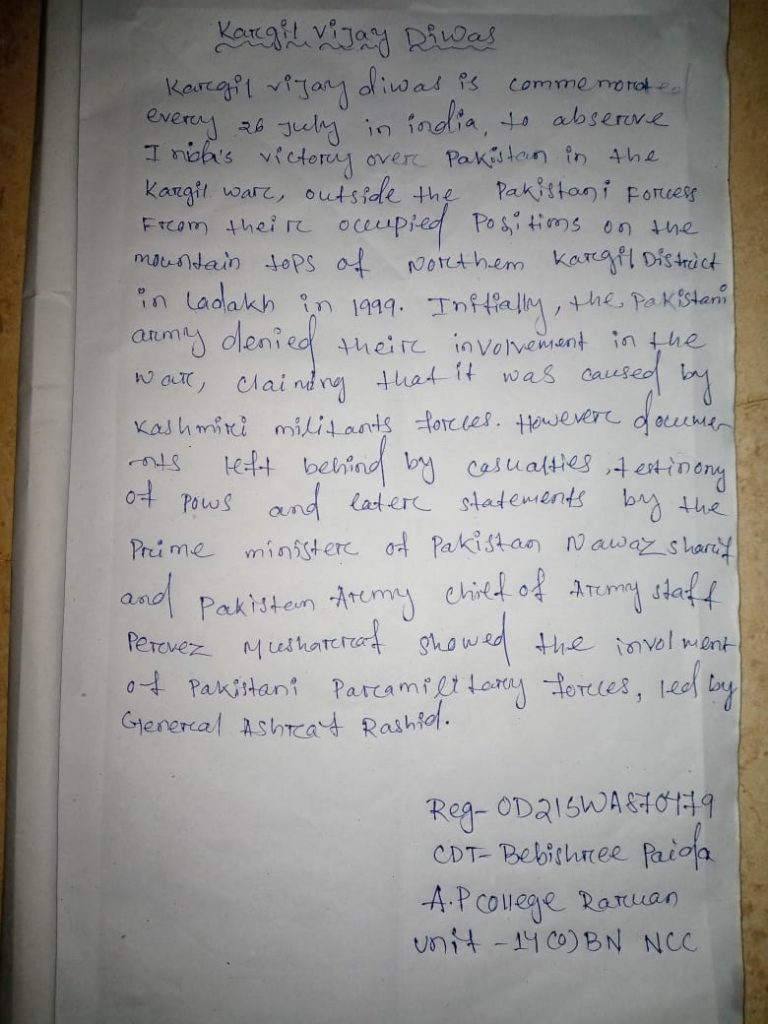 Kargil Vijay Diwas
Kargil vijay diwas is commemorated
every 26 July in india, to abserve
India's victory over Pakistan in the
Kargil war, outside the Pakistani Forcess
From their occupied Positions on the
mountain tops of Northern Kargil District
in ladakh in 1999. Initially, the Pakistani
army denied their involvement in the
war, claiming that it was caused by
Kashmiri militants forces. However documen
-nts left behind by casualties, testinony
of POWs and later statements by the
Prime minister of Pakistan Nawaz sharif
and Pakistan Army chief of Army staff
Pervez Musharraf showed the involment
of Pakistani Paramilitary forces, led by
General Ashraf Rashid.
Reg- OD21SWA870479
CDT- Bebishree Paida
A.P College Raruan
Unit - 14(O)BN NCC